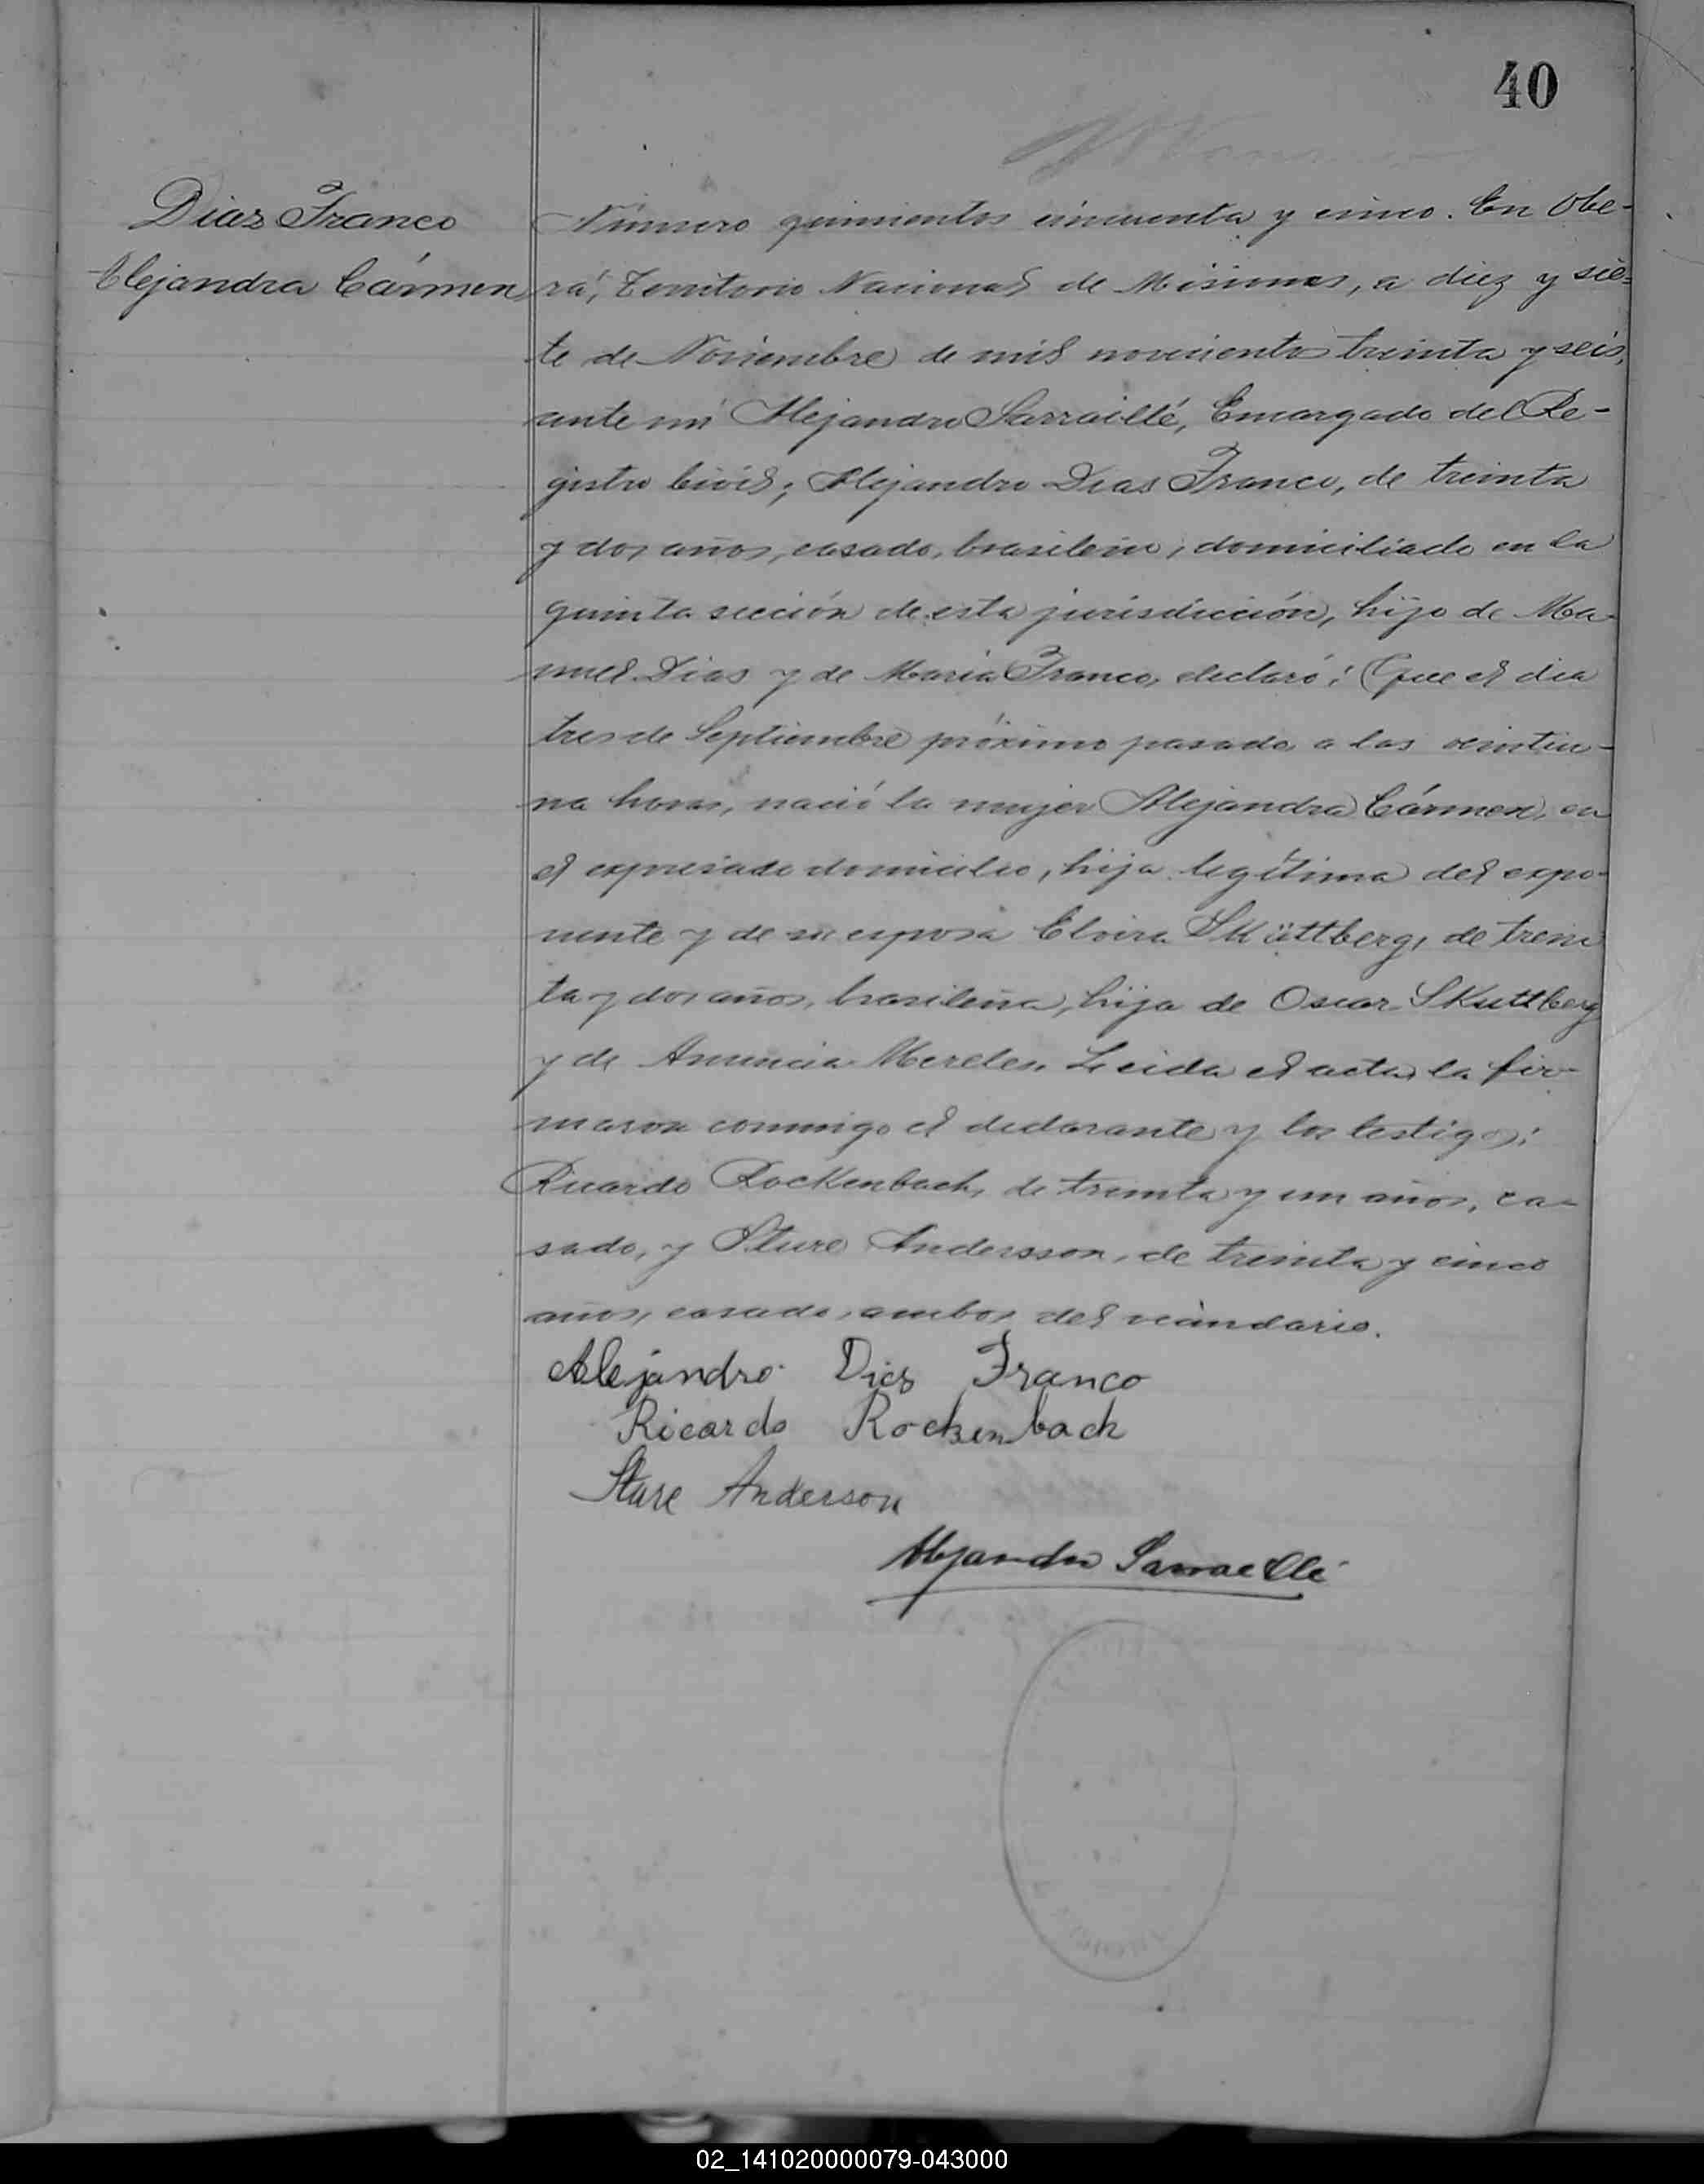 40
Diaz Franco
Alejandra Cármen
Número quinientos cincuenta y cinco. En Obe-
rá, Territorio Nacional de Misiones, a diez y sie-
te de Noviembre de mil novecientos treinta y seis,
ante mí Alejandro Sarraillé, Encargado del Re-
gistro Civil; Alejandro Dias Franco, de treinta
y dos años, casado, brasileño, domiciliado en la
quinta sección de esta jurisdicción, hijo de Ma-
nuel Dias y de Maria Franco, declaró: Que el dia
tres de Septiembre próximo pasado a las veintiu-
na horas, nació la mujer Alejandra Cármen, en
el expresado domicilio, hija legítima del expo-
nente y de su esposa Elvira Sküttberg, de trein
ta y dos años, brasileña, hija de Oscar Skuttberg
y de Anuncia Mereles. Leida el acta, la fir-
maron conmigo el declarante y los testigos:
Ricardo Rockenbach, de treinta y un años, ca-
sado, y Sture Andersson, de treinta y cinco
años, casado, ambos del vecindario.
Alejandro Dies Franco
Ricardo Rockenbach
Sture Anderson
Alejandro Sarraillé
02_141020000079-043000